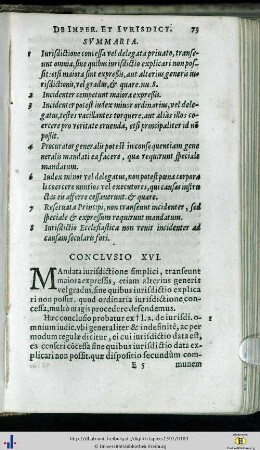 DE IMPER. ET IVRISDICT. 73
SVMMARIA.
1 Iurisdictione concessa vel delegata priuato, transe-
unt omnia, sine quibus iurisdictio explicari non pos-
sit: etsi maiora sint expressis, aut alterius generis iu-
risdictionis, vel gradus, & quare. nu. 8.
2 Incidenter competunt maiora expressis.
3 Incidenter potest index minor ordinarius, vel dele-
gatus, testes vacillantes torquere, aut alias illos co-
ercere pro veritate eruenda, etsi principaliter id nõ
possit.
4 Procurator generalis potest in consequentiam gene-
generalis mandati ea facere, quæ requirunt speciale
mandatum.
6 Iudex minor vel delegatus, non potest pœna corpora
li coercere nuntios vel executores, qui causas instru-
ctas ex asserte cessauerunt. & quare.
7 Reseruata Principi, non transeunt incidenter, sed
speciale & expressum requirunt mandatum.
8 Iurisdictio Ecclesiastica non venit incidenter ad
causam secularis fori.
CONCLVSIO XVI.
Mandata iurisdictione simplici, transeunt
maiora expressis, etiam alterius generis
vel gradus, sine quibus iurisdictio explica
ri non possit. quod ordinaria iurisdictione con-
cessa, multò magis procedere defendemus.
Hæc conclusio probatur ex † l. 2. de iurisdi. 1
omnium iudic. vbi generaliter & indefinitè, ac per
modum regulæ dicitur, ei cui iurisdictio data est,
ea conseri cõcessa sine quibus iurisdictio data ex-
plicari non possit. quæ dispositio secundùm com-
E 5 munem
© Universitätsbibliothek Freiburg